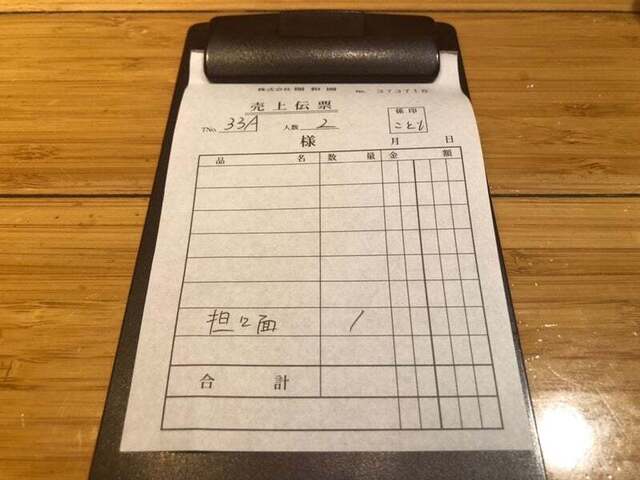 株式会社 No. 373716
売上伝票
TNo. 33A 人数 2 係印
様 月 日
品名 数量 金額
担々面 1
合計